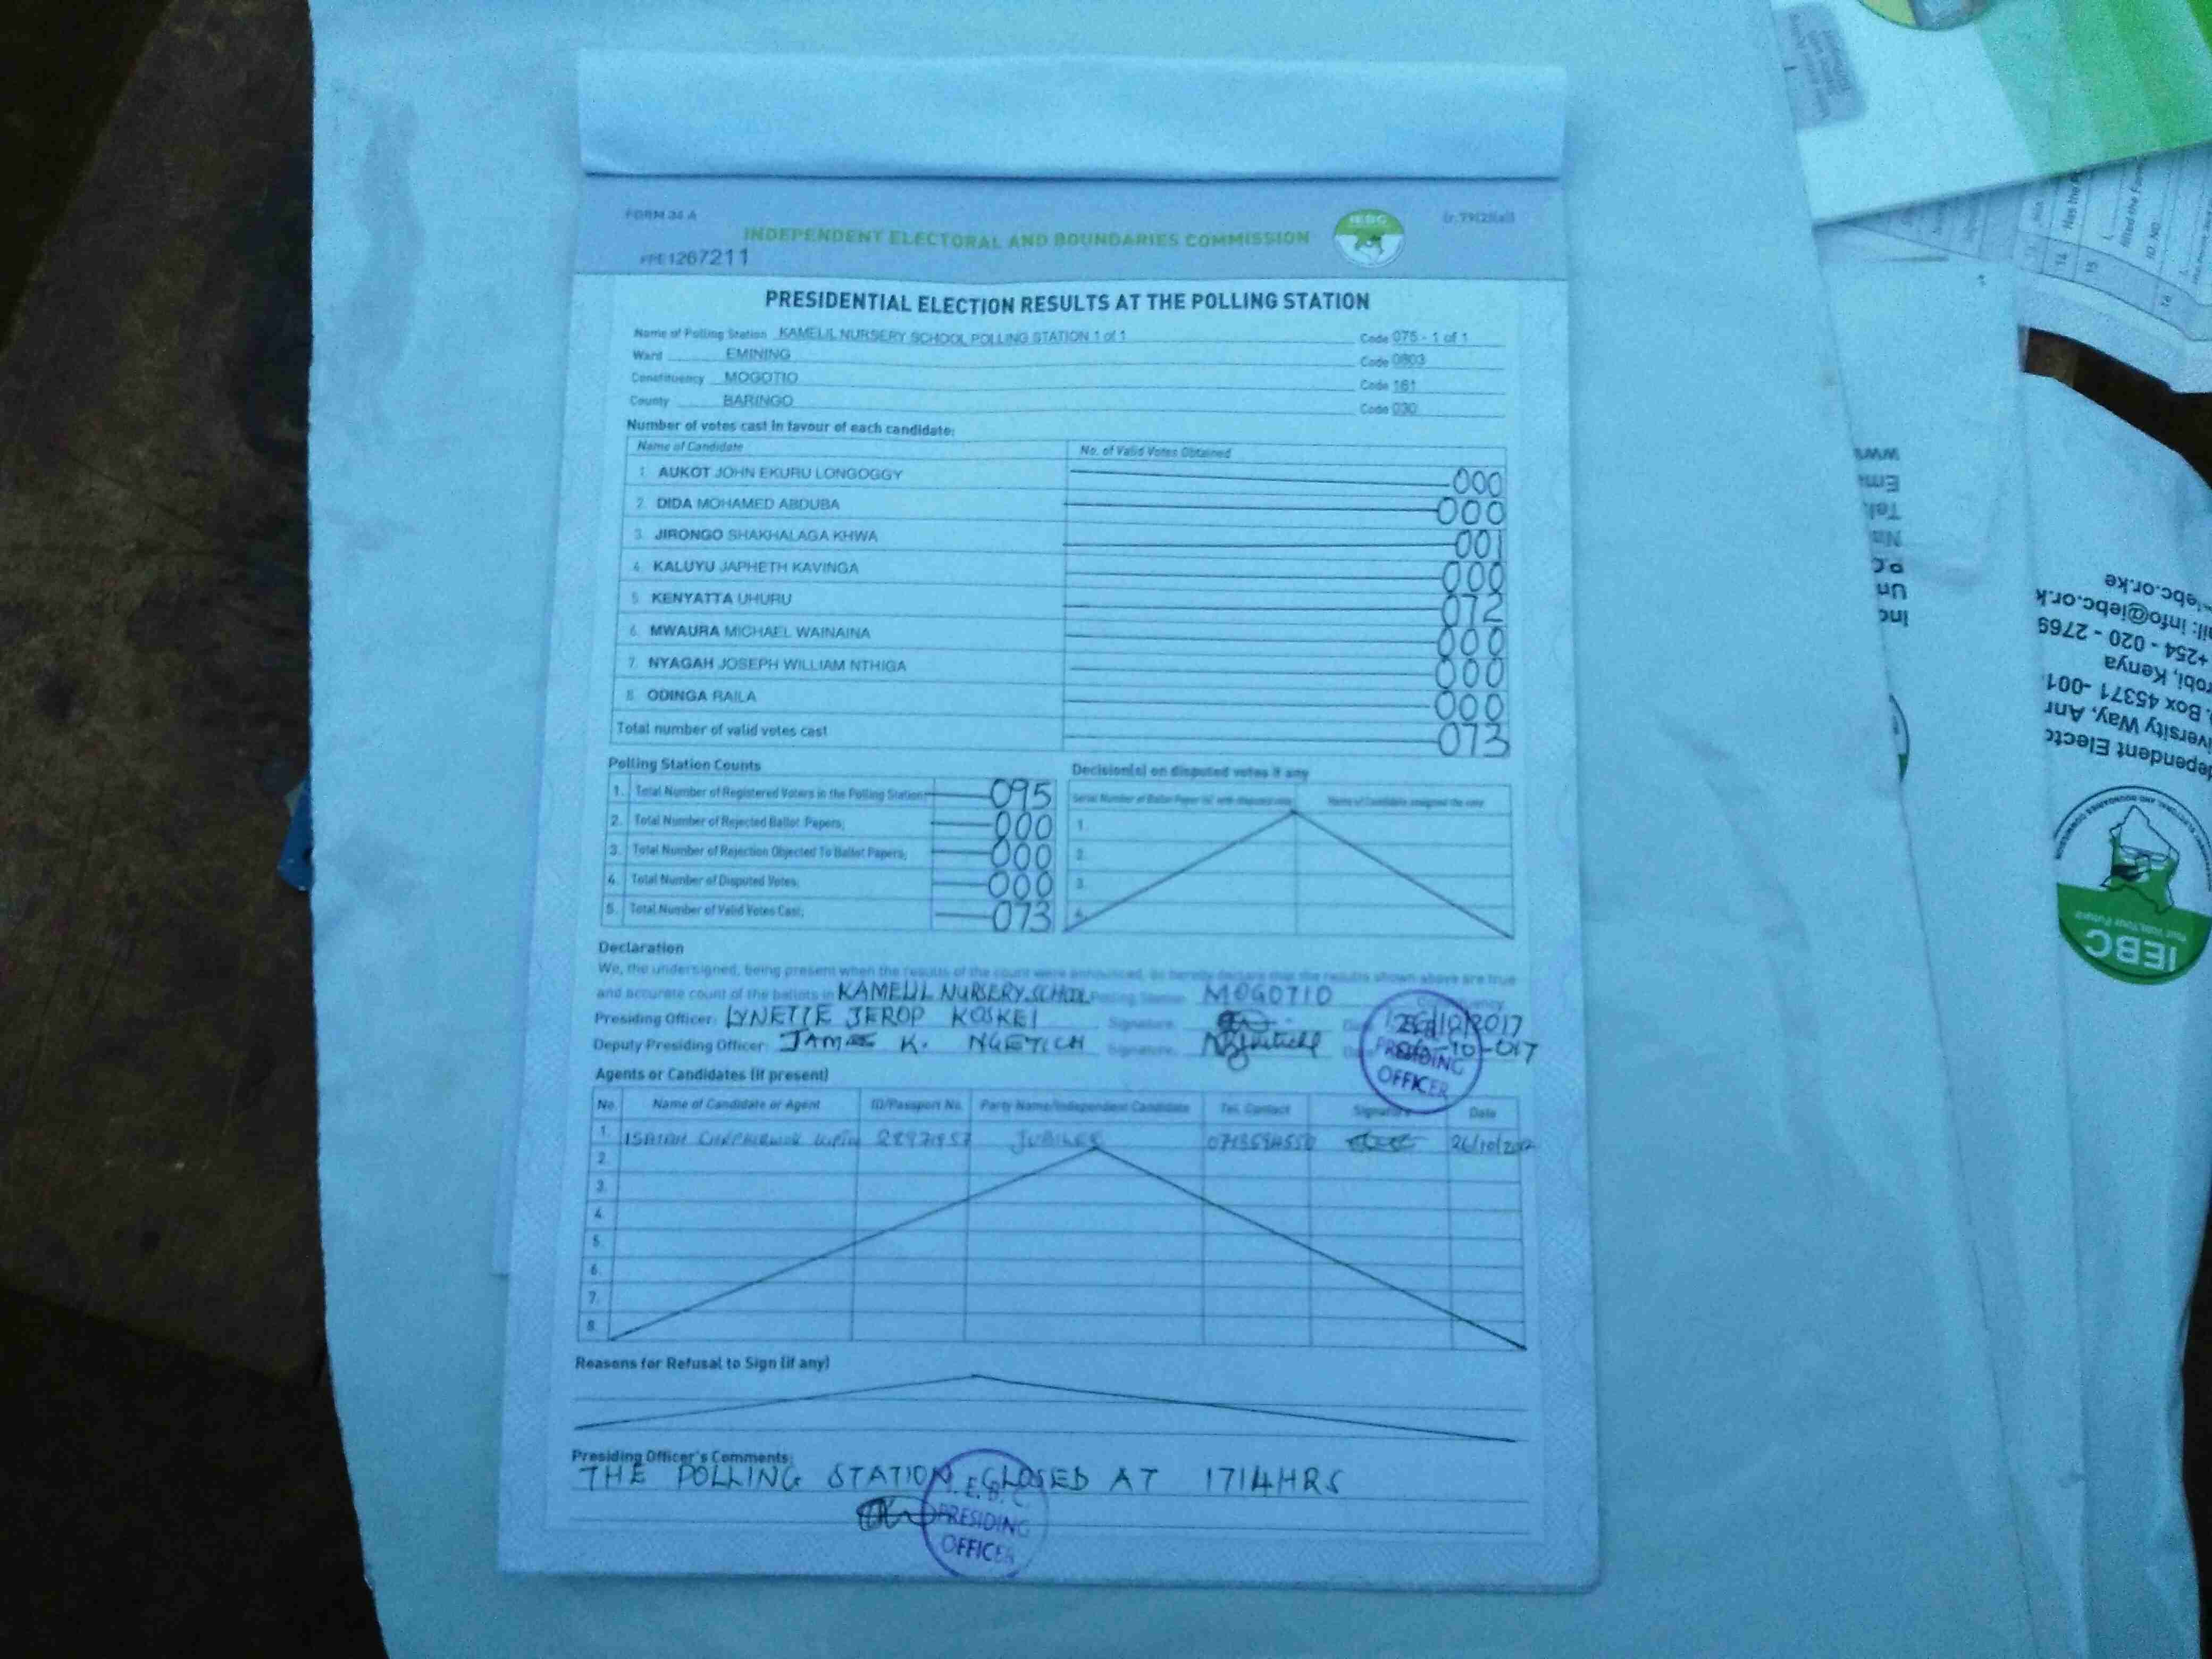 FORM 34 A
INDEPENDENT ELECTORAL AND BOUNDARIES COMMISSION
IEBC
1267211
PRESIDENTIAL ELECTION RESULTS AT THE POLLING STATION
Name of Polling Station KAMELIL NURSERY SCHOOL POLLING STATION 1 of 1 Code 075 - 1 of 1
Ward EMINING Code 0803
Constituency MOGOTIO Code 161
County BARINGO Code 030
Number of votes cast in favour of each candidate:
Name of Candidate No. of Valid Votes Obtained
1. AUKOT JOHN EKURU LONGOGGY 000
2. DIDA MOHAMED ABDUBA 000
3. JIRONGO SHAKHALAGA KHWA 001
4. KALUYU JAPHETH KAVINGA 000
5. KENYATTA UHURU 072
6. MWAURA MICHAEL WAINAINA 000
7. NYAGAH JOSEPH WILLIAM NTHIGA 000
8. ODINGA RAILA 000
Total number of valid votes cast 073
Polling Station Counts
1. Total Number of Registered Voters in the Polling Station 095
2. Total Number of Rejected Ballot Papers; 000
3. Total Number of Rejection Objected To Ballot Papers; 000
4. Total Number of Disputed Votes; 000
5. Total Number of Valid Votes Cast; 073
Decision(s) on disputed votes if any
1.
2.
3.
4.
Declaration
We, the undersigned, being present when the results of the count were announced, do hereby declare that the results shown above are true
and accurate count of the ballots in KAMELIL NURSERY SCHOOL Polling Station MOGOTIO Constituency
Presiding Officer: LYNETTE JEROP KOSKEI Signature 26/10/2017
Deputy Presiding Officer: JAMES K. NGETICH Signature
PRESIDING
OFFICER
Agents or Candidates (if present)
No. Name of Candidate or Agent ID/Passport No. Party Name/Independent Candidate Tel. Contact Signature Date
1. ISAIAH JUBILEE 26/10/2017
2.
3.
4.
5.
6.
7.
8.
Reasons for Refusal to Sign (if any)
Presiding Officer's Comments:
THE POLLING STATION CLOSED AT 1714HRS
I.E.B.C.
PRESIDING
OFFICER
Has the
14
15
16
ID. NO.
IEBC
Your Vote, Your Future
Box 45371 -001
+254 - 020 - 2769
info@iebc.or.k
iebc.or.ke